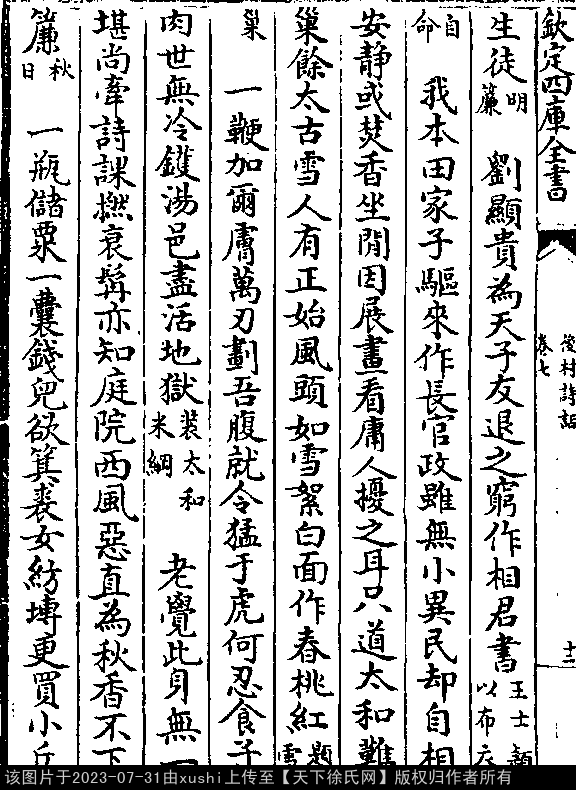 欽定四庫全書
後村詩話
卷七
十二
生徒明簾 劉顯貴為天子友退之窮作相君書王士顯以布衣
自命 我本田家子驅來作長官政雖無小異民却自相
安静或焚香坐閒因展畫看庸人擾之耳只道太和難
巢餘太古雪人有正始風頭如雪絮白面作春桃紅題雪
巢 一鞭加爾膚萬刃劃吾腹就令猛于虎何忍食子
肉世無冷鑊湯邑盡活地獄裝太和米綱 老覺此身無一
堪尚牽詩課撚衰髯亦知庭院西風惡直為秋香不下
簾秋日 一瓶儲粟一囊錢兒欲箕裘女紡塼更買小丘
该图片于2023-07-31由xushi上传至【天下徐氏网】版权归作者所有